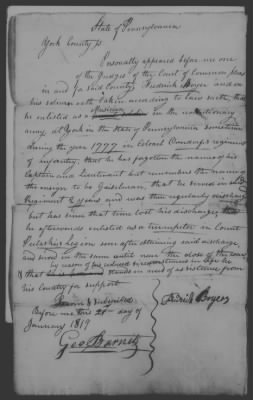 State of Pennsylvania
York County ss
Personally appeared before me one
of the Judges of the Court of Common pleas
in and for said County Frederick Boyer and on
his solemn oath taken according to law saith, that
he enlisted as a Musician in the revolutionary
army at York in the State of Pennsylvania sometime
during the year 1777 in Colonel regiment
of infantry; that he has forgotten the names of his
Captain and lieutenant but remembers the name of
the ensign to be Geiselman, that he served in said
Regiment 2 years and was then regularly discharged
but has since that time lost his discharge, that
he afterwards enlisted as a trumpeter in Count
Pulaski's Legion soon after obtaining said discharge,
and served in the same until near the close of the war
by reason of his reduced circumstances in life he
& that stands in need of assistance from
his Country for support
Sworn & subscribed
Before me this 20th day of
January 1819
Fridrich Boyer
Geo Barnitz